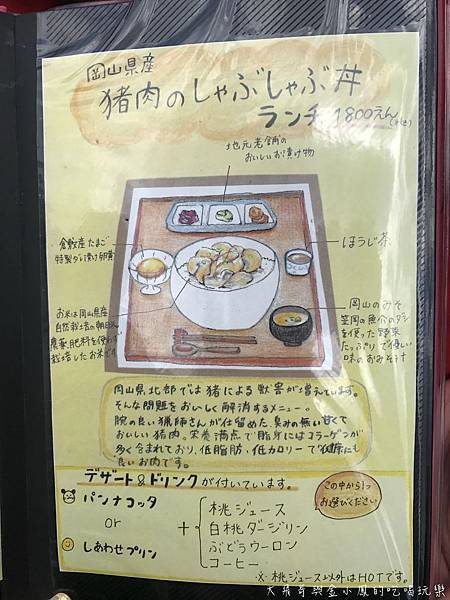 岡山県産
猪肉のしゃぶしゃぶ丼
ランチ 1800えん
地元老舗の
おいしいお漬け物
倉敷産たまご
特製ダレ漬け卵黄
ほうじ茶
お米は岡山県産
自然栽培の朝日米
農薬、肥料を使わず
栽培したお米です
岡山のみそ
笠岡の魚介のダシ
を使った野菜
たっぷりで優しい
味のおみそ汁
岡山県北部では猪による獣害が増えています。
そんな問題をおいしく解消するメニュー。
腕の良い猟師さんが仕留めた、臭みの無い甘くて
おいしい猪肉。栄養満点で脂身にはコラーゲンが
多く含まれており、低脂肪・低カロリーで健康にも
良いお肉です。
デザート&ドリンクが付いています。
パンナコッタ
or
しあわせプリン
+
桃ジュース
白桃ダージリン
ぶどうウーロン
コーヒー
この中から1つ
お選びください
※桃ジュース以外はHOTです。
大飛奇與金小鳳的吃喝玩樂